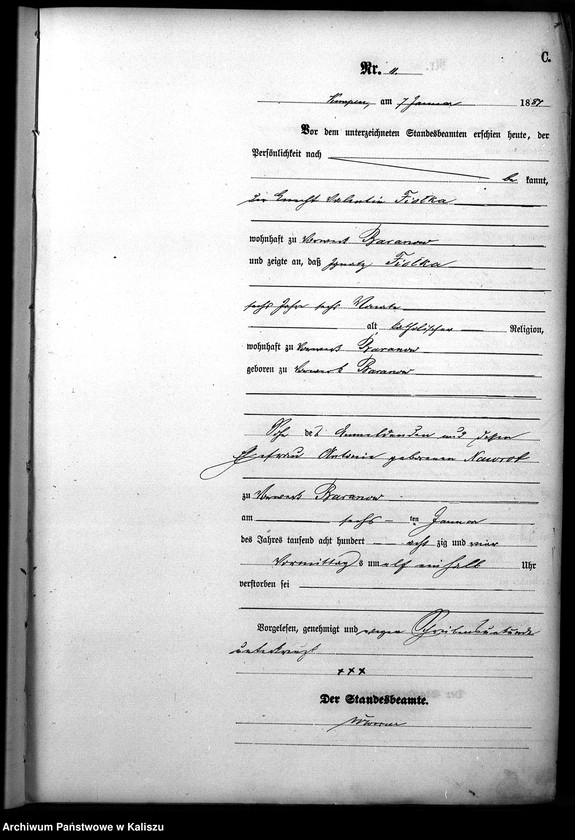 C.
Nr. 11.
Kempen, am 7 Januar 1884
Vor dem unterzeichneten Standesbeamten erschien heute, der
Persönlichkeit nach
be kannt,
der Knecht Valentin Fislka
wohnhaft zu Vorwerk Baranow
und zeigte an, daß Ignatz Fislka
sechs Jahre sechs Monate
alt, katholischer Religion,
wohnhaft zu Vorwerk Baranow
geboren zu Vorwerk Baranow
Sohn des Anmeldenden und dessen
Ehefrau Antonie geborenen Nawrot
zu Vorwerk Baranow
am sechs ten Januar
des Jahres tausend acht hundert acht zig und vier
Vormittags um elf ein halb Uhr
verstorben sei
Vorgelesen, genehmigt und wegen Schreibensunkunde
unterkreuzt
+++
Der Standesbeamte.
Archiwum Państwowe w Kaliszu